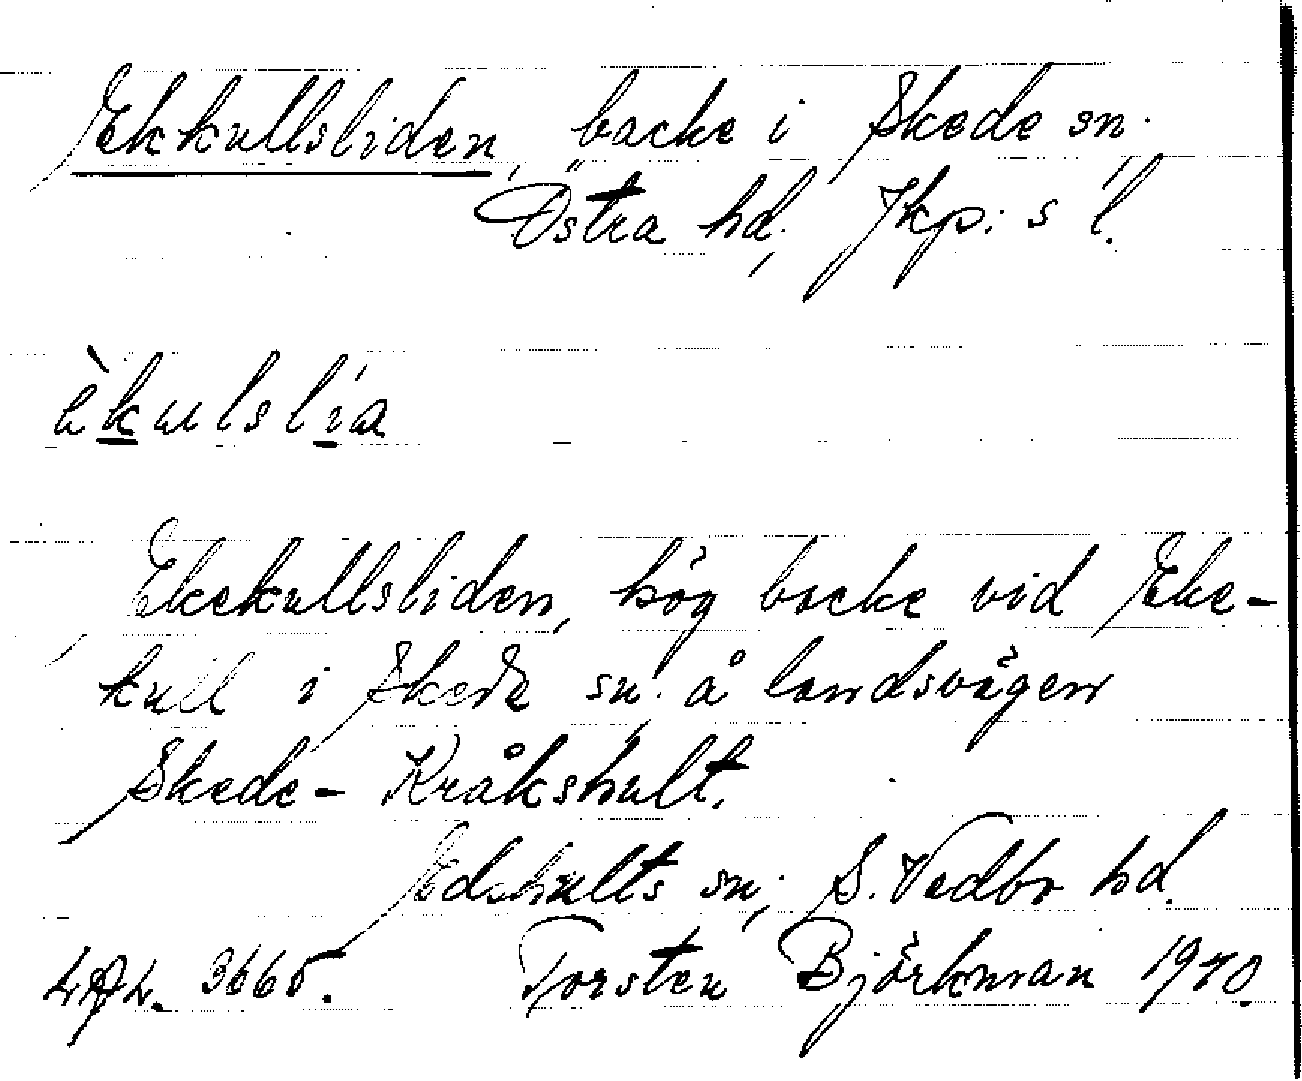 Ekkullsliden, backe i Skede sn.
Östra hd, Jkp:s l.
èkulslía
Ekekullsliden, hög backe vid Eke-
kull i Skede sn. å landsvägen
Skede-Kråkshult.
Edshults sn; S. Vedbo hd.
3665. Torsten Björkman 1910.